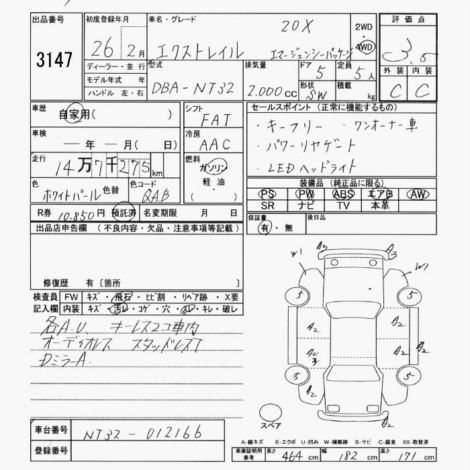 出品番号 3147
初度登録年月 26年2月
ディーラー・並行
モデル年式 年
ハンドル 左・右
車名・グレード 20X
エクストレイル エマージェンシーパッケージ
2WD・4WD
型式 DBA-NT32
排気量 2.000cc
ドア 5
形状 SW
定員 5人
積載 kg
評価点 3.5
外装 C
内装 C
車歴 自家用( )
車検 年 月 日
走行 14万7千275km
色 ホワイトパール 色替
色コード QAB
シフト FAT
冷房 AAC
燃料 ガソリン 軽油 ( )
R券 10.850円 預託済
名変期限 月 日
セールスポイント(正常に機能するもの)
・キーフリー ・ワンオーナー車
・パワーリヤゲート
・LEDヘッドライト
装備品(純正品に限る)
PS PW ABS エアB AW
SR ナビ TV 本革
保証書 有・無
後日品
出品店申告欄(不良内容・欠品・注意事項等記載)
修復歴 有〔箇所
検査員記入欄
FW キズ・飛石・ヒビ割・リペア跡・X要
内装 キズ・汚レ・コゲ・穴・スレ・キレ・破レ
各A.U. キーレス2コ車内
オーディオレス スタッドレスT
DミラーA.
車台番号 NT32-012166
登録番号
A3
W1
W1
5
5
A2
A2
A2
A2
5
5
A2
A2
A3
スペア
A-線キズ E-エクボ U-凹み W-補修跡 S-サビ C-腐食 XX-取替済
車庫証明用参考 長さ 464cm 幅 182cm 高さ 171cm